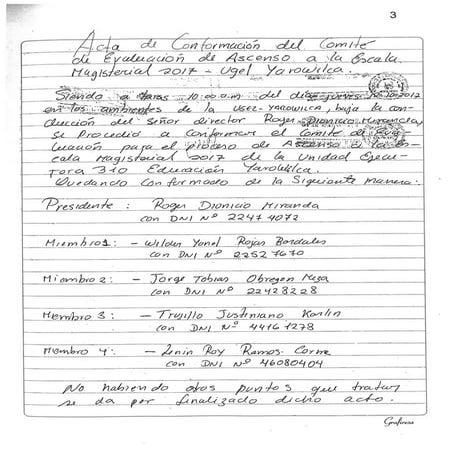 3
Acta de Conformación del Comité
de Evaluación de Ascenso a la Escala
Magisterial 2017 - Ugel Yarowilca.
Siendo a horas 10:00 a.m. del día jueves
en los ambientes de la UGEL-YAROWILCA, bajo la con-
ducción del Señor director Roger Dionicio Miranda,
se Procedió a Conformar el Comité de Eva-
luación para el proceso de Ascenso a la Es-
cala Magisterial 2017 de la Unidad Ejecu-
tora 310 Educación Yarowilca.
Quedando Conformado de la Siguiente manera:
Presidente : Roger Dionicio Miranda
con DNI Nº 22474072
Miembro 1: - Wilder Yonel Rojas
con DNI Nº 22527670
Miembro 2: - Jorge Tobias Obregon Meza
con DNI Nº 22428228
Miembro 3: - Trujillo Justiniano Karlin
con DNI Nº 44161278
Miembro 4: - Lenin Roy Ramos
con DNI Nº 46080404
No habiendo otros puntos que tratar
se da por finalizado dicho acto.
Graficosa